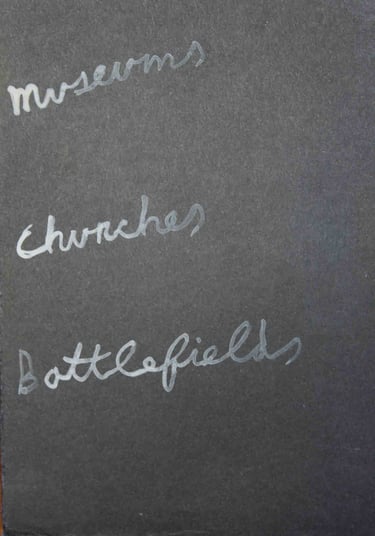 Museums
Churches
Battlefields